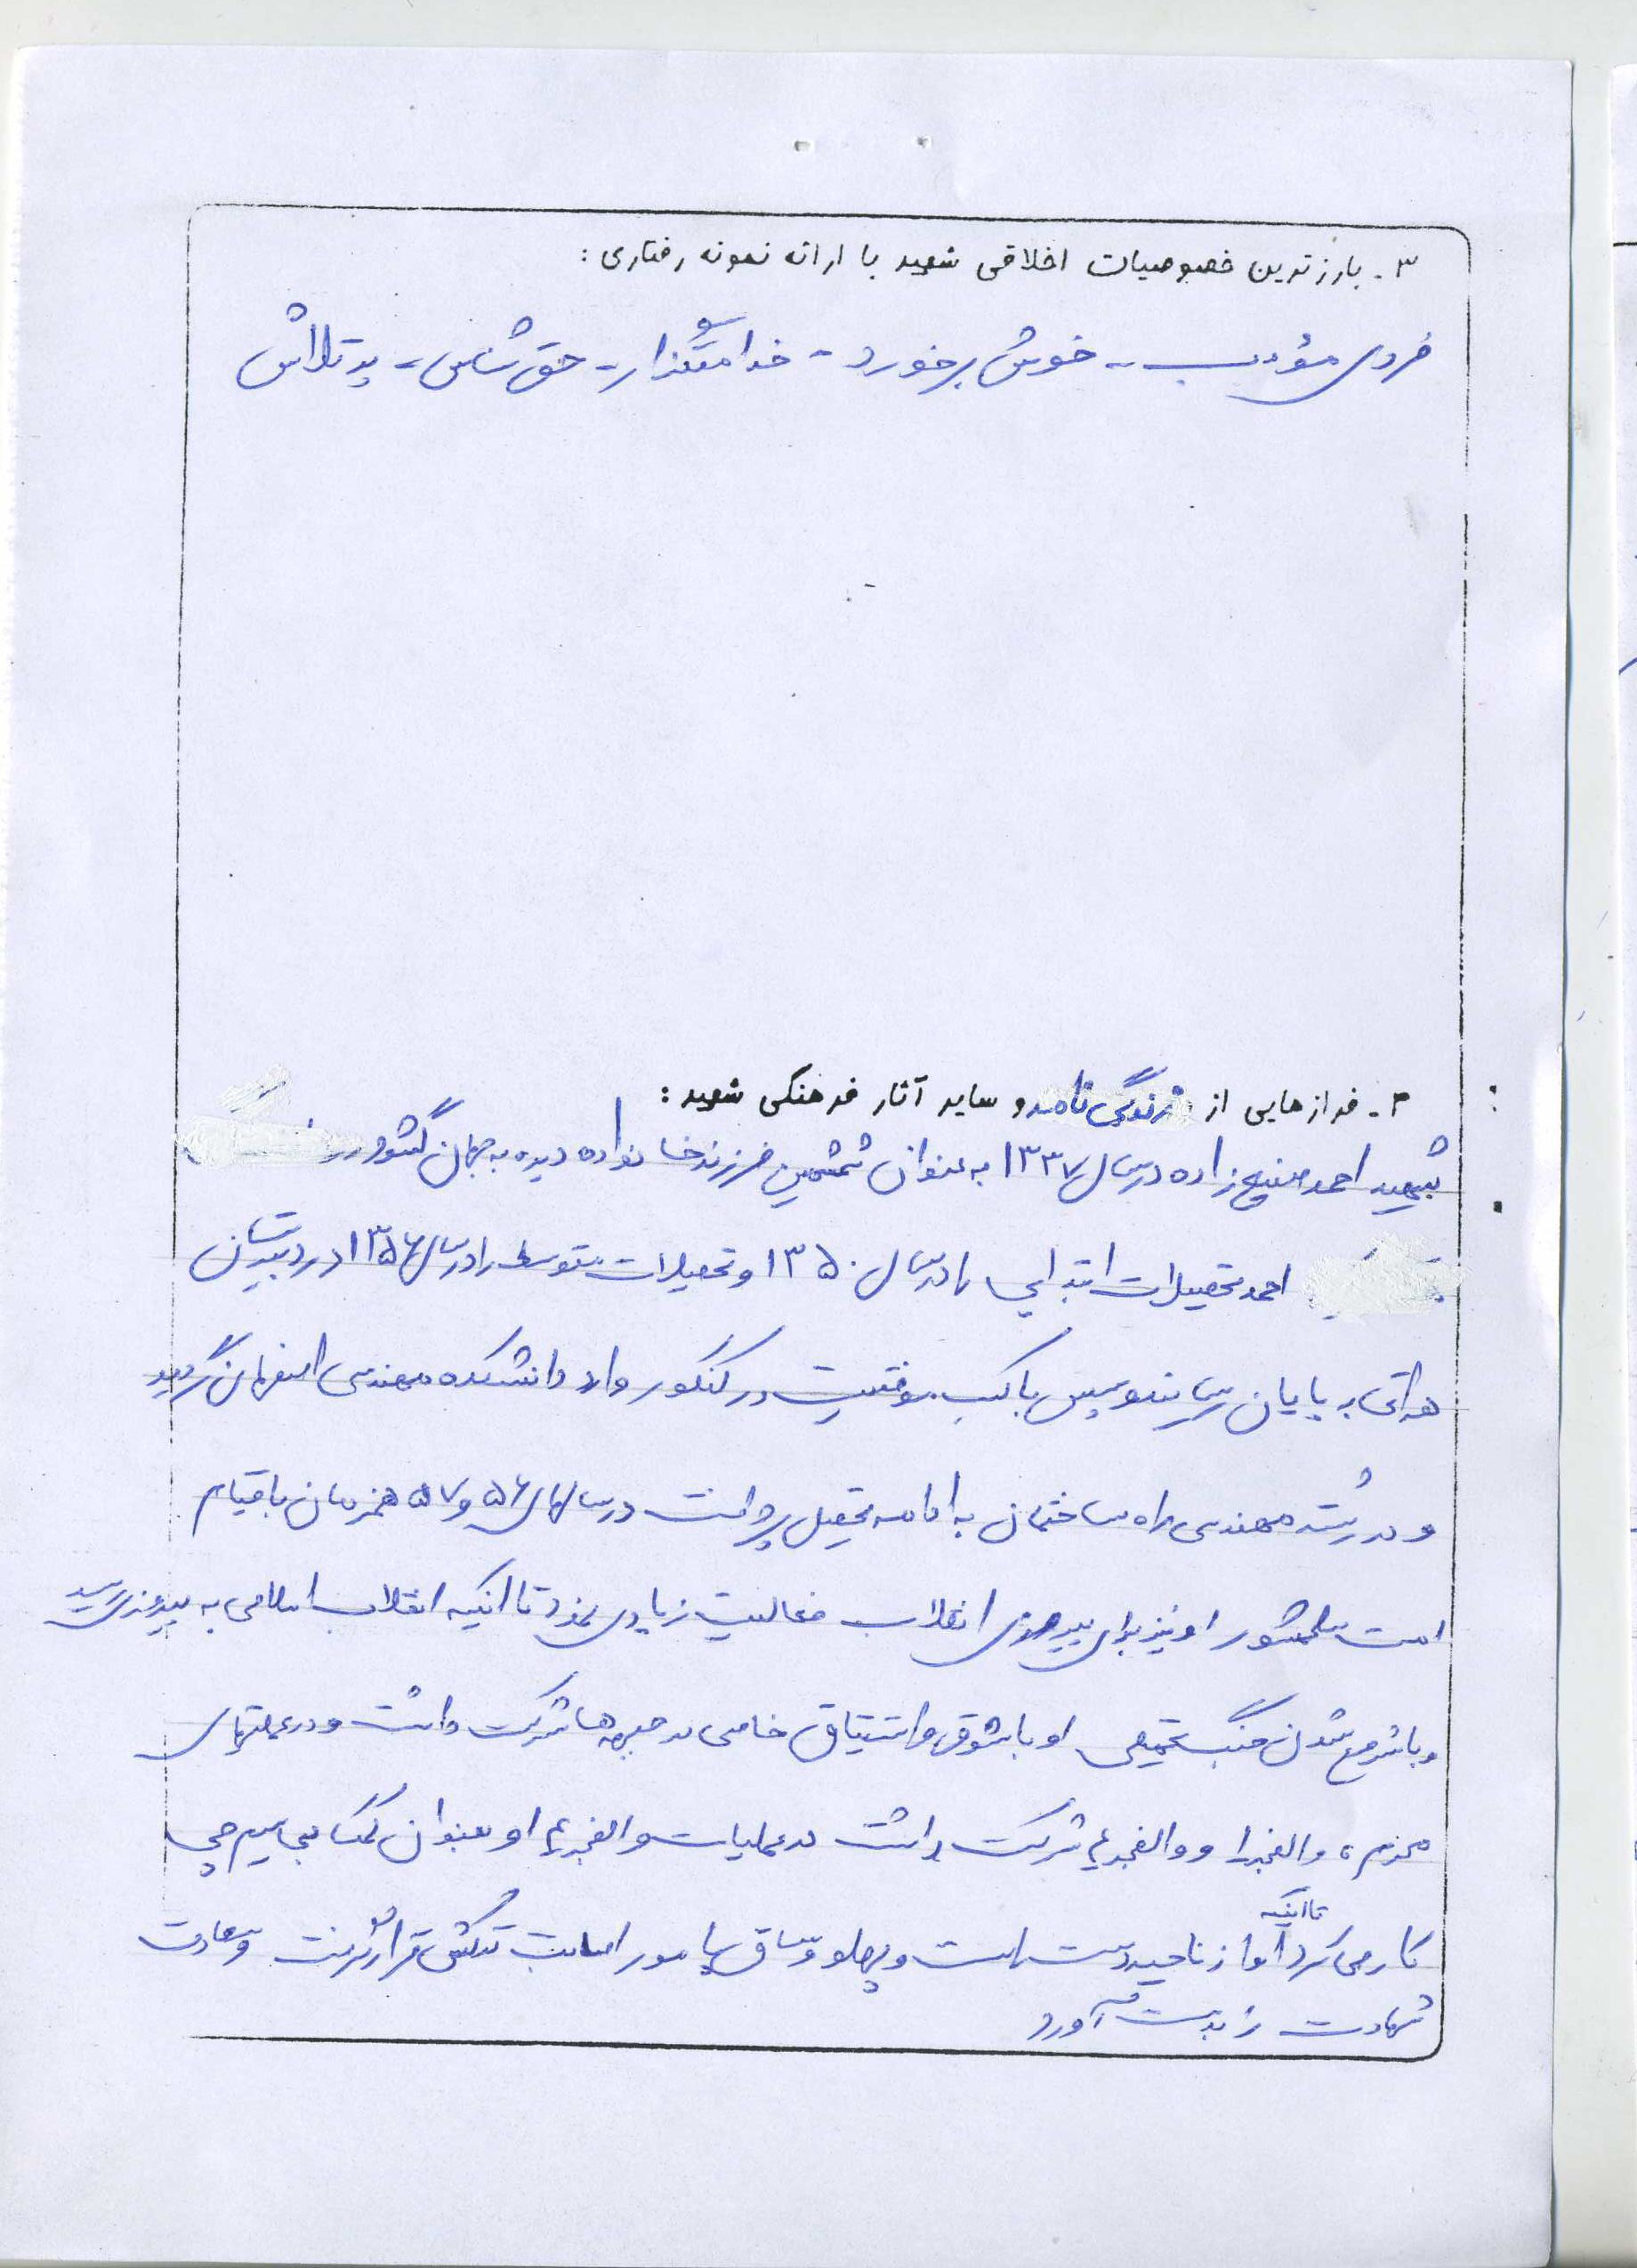 ۳ـ بارزترین خصوصیات اخلاقی شهید با ارائه نمونه رفتاری :
فردی مؤدب - خوش برخورد - خدمتگزار - حق شناس - پر تلاش
۴ـ فرازهایی از زندگی نامه و سایر آثار فرهنگی شهید :
شهید احمد صنیع زاده در سال ۱۳۳۷ به عنوان ششمین فرزند خانواده دیده به جهان گشود
احمد تحصیلات ابتدایی را در سال ۱۳۵۰ و تحصیلات متوسطه را در سال ۱۳۵۶ در دبیرستان
هراتی به پایان رسانید و سپس با کسب موفقیت در کنکور وارد دانشکده مهندسی اصفهان گردید
و در رشته مهندسی راه ساختمان به ادامه تحصیل پرداخت در سالهای ۵۶ و ۵۷ همزمان با قیام
امت سلحشور او نیز برای پیروزی انقلاب فعالیت زیادی نمود تا اینکه انقلاب اسلامی به پیروزی رسید
و با شروع شدن جنگ تحمیلی او با شوق و اشتیاق خاصی در جبهه ها شرکت داشت و در عملیتهای
محرم ، والفجر ۱ و والفجر ۴ شرکت داشت در عملیات والفجر ۴ او بعنوان کمک بی سیم چی
کار می کرد تا اینکه او از ناحیه دست راست و پهلو و ساق پا مورد اصابت ترکش قرار گرفت و سعادت
شهادت را بدست آورد